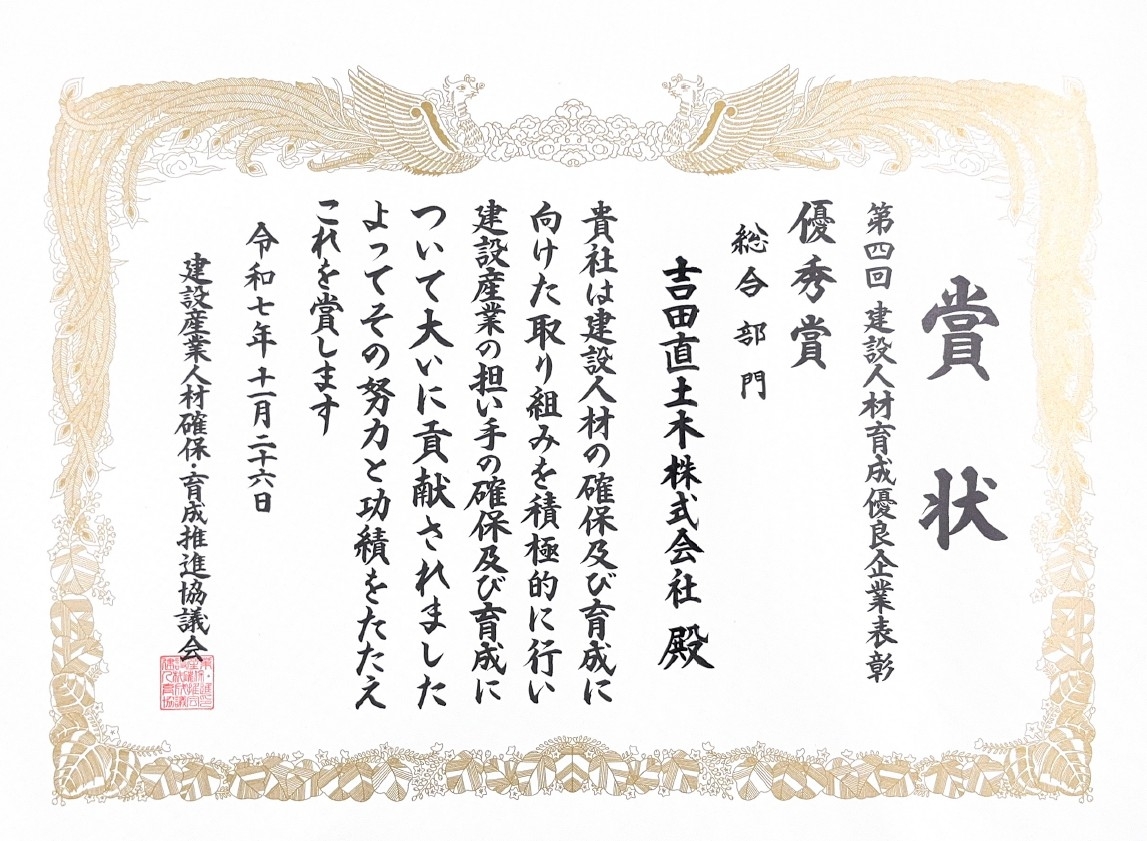 賞状
第四回 建設人材育成優良企業表彰
優秀賞
総合部門
吉田直土木株式会社 殿
貴社は建設人材の確保及び育成に
向けた取り組みを積極的に行い
建設産業の担い手の確保及び育成に
ついて大いに貢献されました
よってその努力と功績をたたえ
これを賞します
令和七年十一月二十六日
建設産業人材確保・育成推進協議会